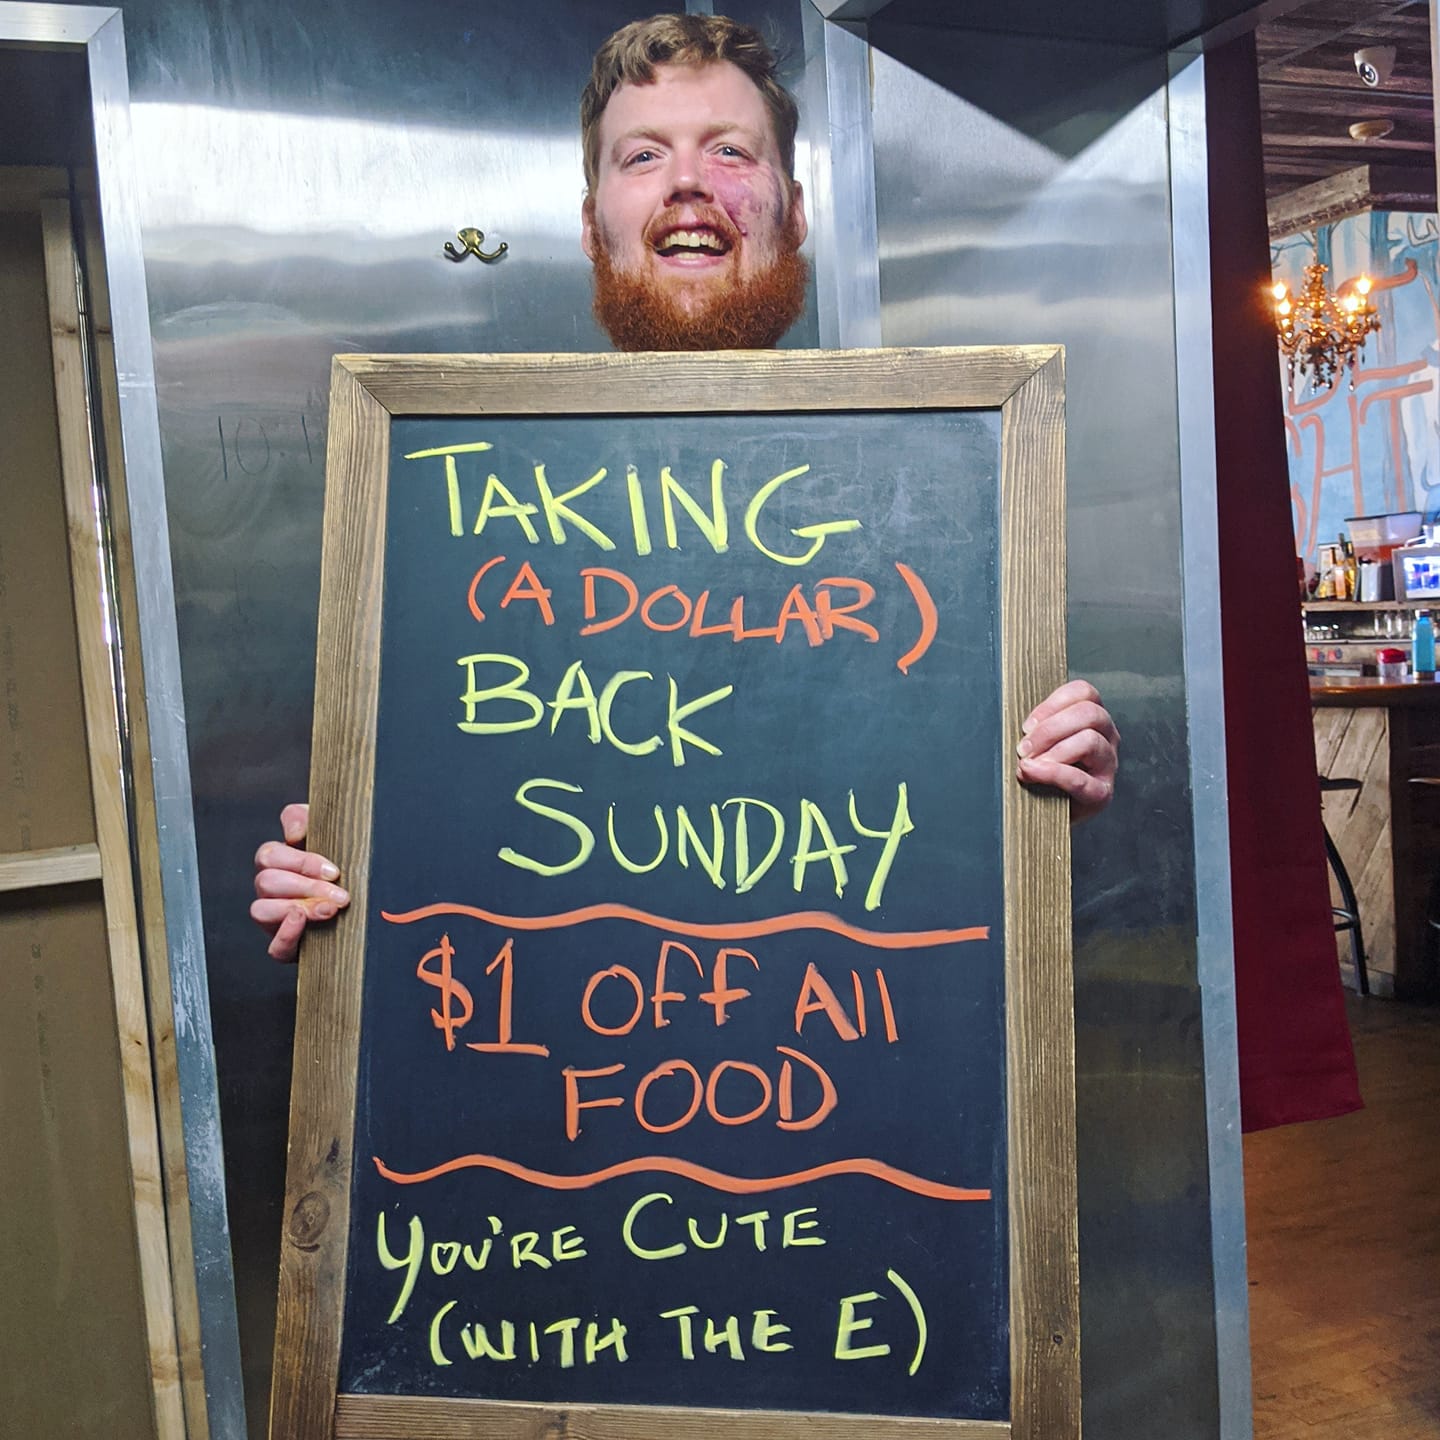 TAKING
(A DOLLAR)
BACK
SUNDAY
$1 OFF All
FOOD
YOU'RE CUTE
(WITH THE E)
10.1